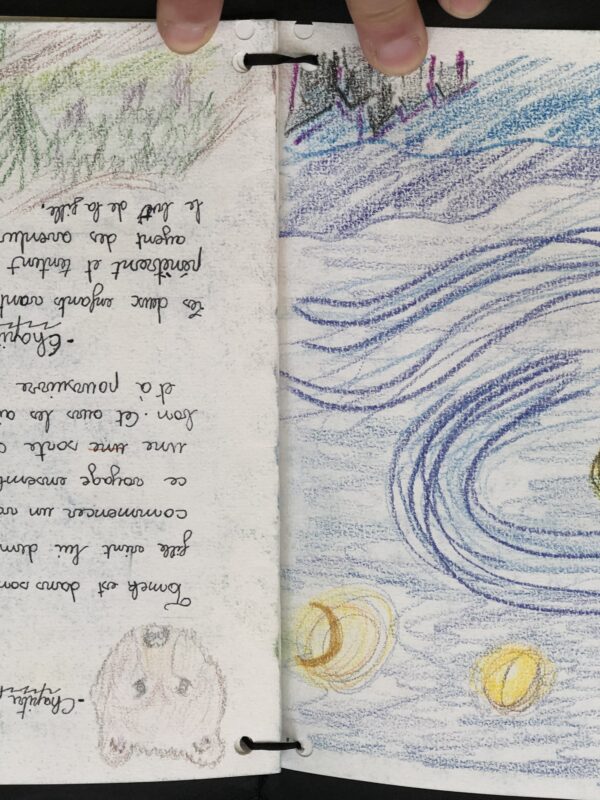 -Chapit
Tomek est dans son
fille vient lui dem
commencer un vo
ce voyage ensemb
une une sorte d
bon. Cet ours les ai
et à poursuivre
-Chapit
Les deux enfants vont
pénètrent et tentent
ayent des aventur
le but de la fille.